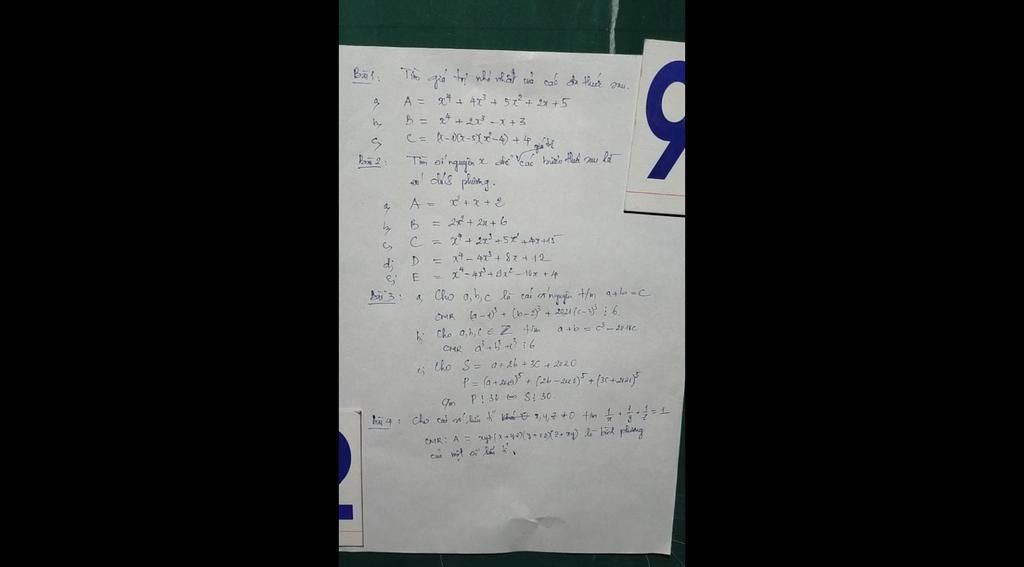 Bài 1: Tìm giá trị nhỏ nhất của các đa thức sau.
a, A = x⁴ + 4x³ + 5x² + 2x + 5
b, B = x⁴ + 2x³ - x + 3
c, C = (x-1)(x-5)(x²-4) + 4
giá trị
Bài 2: Tìm số nguyên x để các biểu thức sau là
số chính phương.
a, A = x² + x + 2
b, B = 2x² + 2x + 6
c, C = x⁴ + 2x³ + 5x² + 4x + 15
d; D = x⁴ - 4x³ + 8x + 12
e; E = x⁴ - 4x³ + x² - x + 4
Bài 3: a, Cho a, b, c là các số nguyên t/m a+b = c
CMR (a-1)³ + (b-2)³ + (c-3)³ ⋮ 6
b; Cho a, b, c ∈ Z t/m a+b = c³ - 2018c
CMR a³ + b³ + c³ ⋮ 6
c; Cho S = a + 2b + 3c + 2020
P = (a + )⁵ + (2b - )⁵ + (3c + 2021)⁵
P ⋮ 30 ⇔ S ⋮ 30.
Bài 4: Cho các số hữu tỉ x, y, z ≠ 0 t/m 1/x + 1/y + 1/z = 1
CMR: A = xyz(x+yz)(y+xz)(z+xy) là bình phương
của một số hữu tỉ.
9
2